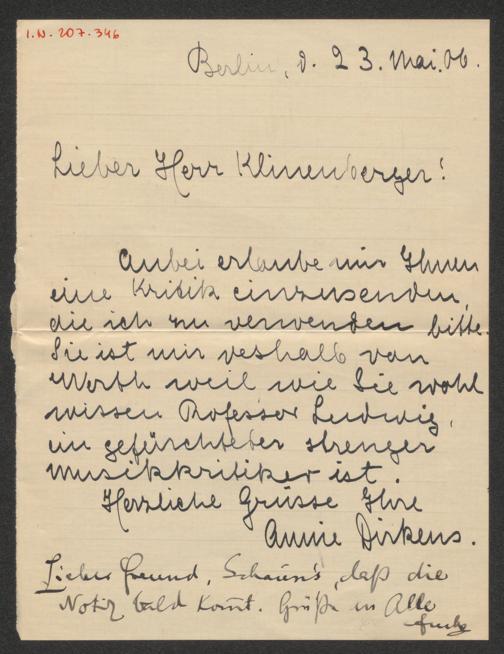 I.N. 207.346
Berlin, d. 23. Mai. 06.
Lieber Herr Klinenberger!
Anbei erlaube mir Ihnen
eine Kritik einzusenden,
die ich zu verwenden bitte.
Sie ist mir deshalb von
Werth weil wie Sie wohl
wissen Professor Ludwig,
ein gefürchteter strenger
Musikkritiker ist.
Herzliche Grüsse Ihre
Annie Dirkens.
Lieber Freund, Schaun's, daß die
Notiz bald kommt. Grüße an Alle